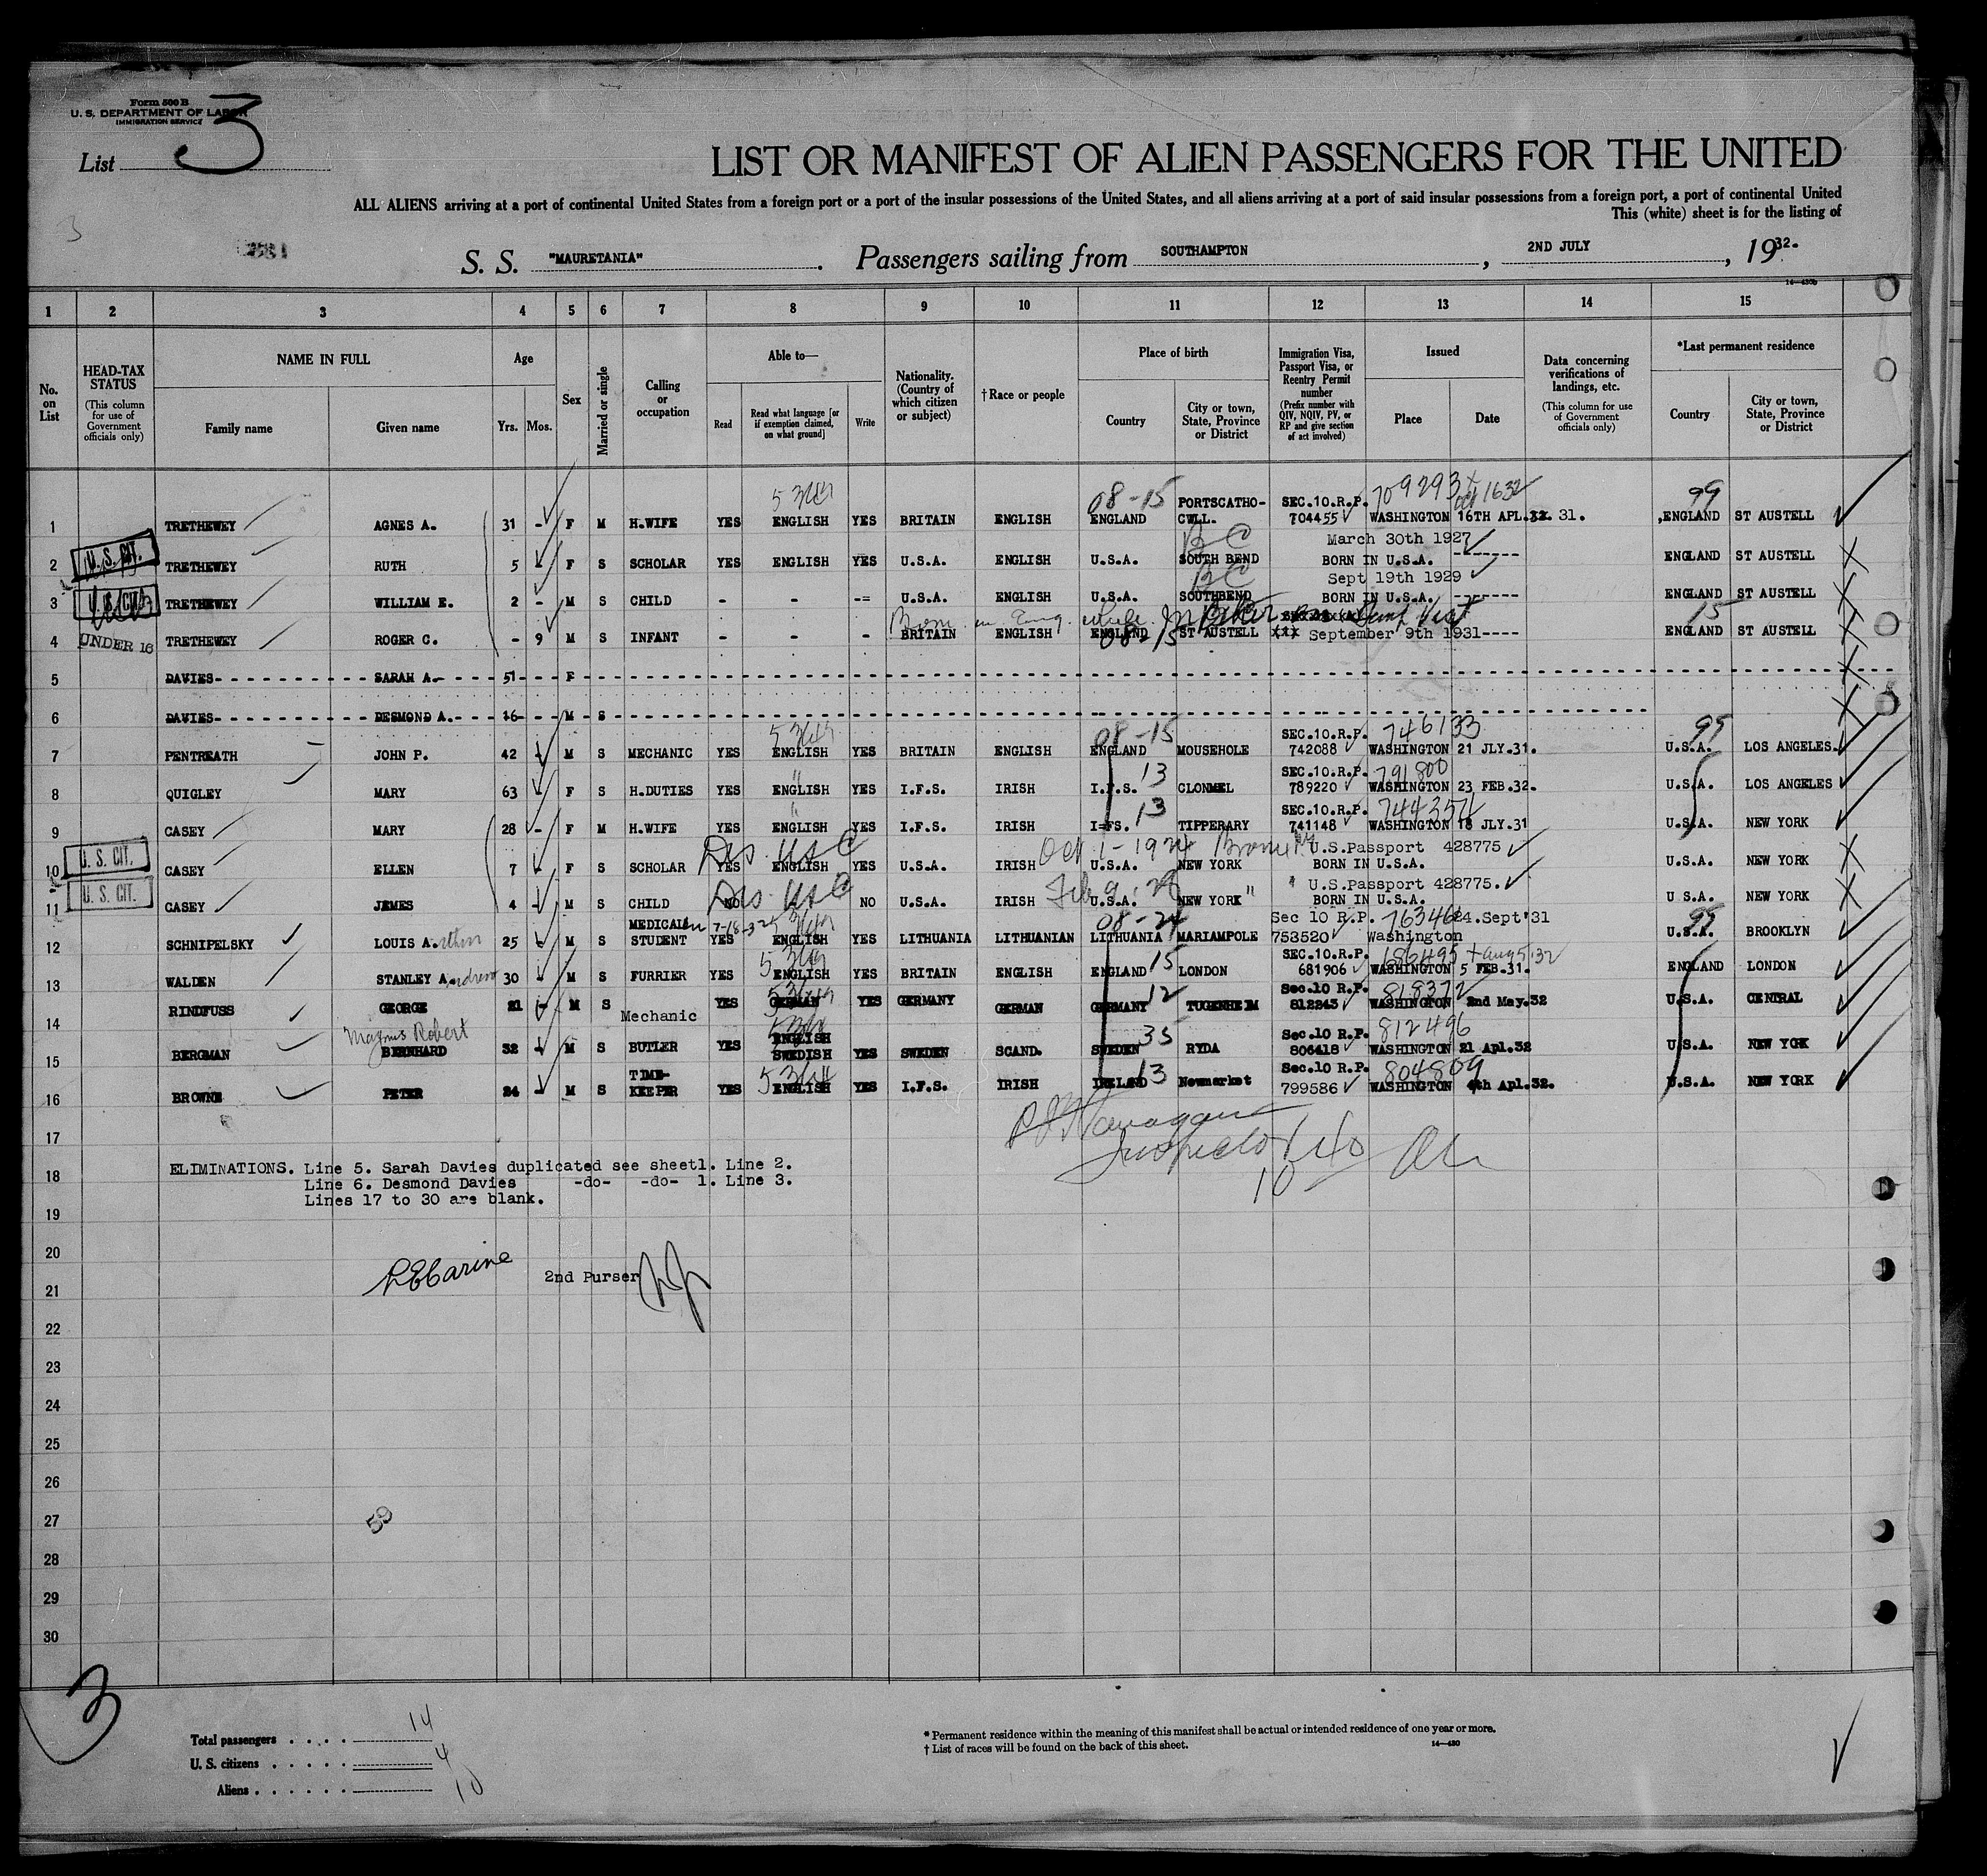 Form 500 B
U. S. DEPARTMENT OF LABOR
IMMIGRATION SERVICE
List 3
LIST OR MANIFEST OF ALIEN PASSENGERS FOR THE UNITED
ALL ALIENS arriving at a port of continental United States from a foreign port or a port of the insular possessions of the United States, and all aliens arriving at a port of said insular possessions from a foreign port, a port of continental United
This (white) sheet is for the listing of
3
S. S. "MAURETANIA" . Passengers sailing from SOUTHAMPTON , 2ND JULY , 1932.
14—430b
1 2 3 4 5 6 7 8 9 10 11 12 13 14 15
No. on List
HEAD-TAX STATUS
(This column for use of Government officials only)
NAME IN FULL
Family name Given name
Age
Yrs. Mos.
Sex
Married or single
Calling or occupation
Able to—
Read
Read what language [or if exemption claimed, on what ground]
Write
Nationality. (Country of which citizen or subject)
†Race or people
Place of birth
Country
City or town, State, Province or District
Immigration Visa, Passport Visa, or Reentry Permit number
(Prefix number with QIV, NQIV, PV, or RP and give section of act involved)
Issued
Place Date
Data concerning verifications of landings, etc.
(This column for use of Government officials only)
*Last permanent residence
Country
City or town, State, Province or District
08-15 PORTSCATHO- SEC.10.R.P. 709293 99
1 TRETHEWEY AGNES A. 31 - F M H.WIFE YES ENGLISH YES BRITAIN ENGLISH ENGLAND CWLL. 704455 WASHINGTON 16TH APL. 31. ENGLAND ST AUSTELL
U. S. CIT. BC March 30th 1927
2 TRETHEWEY RUTH 5 F S SCHOLAR YES ENGLISH YES U.S.A. ENGLISH U.S.A. SOUTH BEND BORN IN U.S.A. -------- ENGLAND ST AUSTELL
U. S. CIT. BC Sept 19th 1929
3 TRETHEWEY WILLIAM E. 2 - M S CHILD - - -= U.S.A. ENGLISH U.S.A. SOUTHBEND BORN IN U.S.A. ------- ENGLAND ST AUSTELL
Born in Eng. while 15
4 UNDER 16 TRETHEWEY ROGER C. - 9 M S INFANT - - - BRITAIN ENGLISH ENGLAND ST AUSTELL xxx September 9th 1931---- ENGLAND ST AUSTELL
08-15
5 DAVIES SARAH A. 51 F
6 DAVIES DESMOND A. 16 M S
08-15 SEC.10.R.P. 746133 99
7 PENTREATH JOHN P. 42 M S MECHANIC YES ENGLISH YES BRITAIN ENGLISH ENGLAND MOUSEHOLE 742088 WASHINGTON 21 JLY.31. U.S.A. LOS ANGELES.
13 SEC.10.R.P. 791800
8 QUIGLEY MARY 63 F S H.DUTIES YES ENGLISH YES I.F.S. IRISH I.F.S. CLONMEL 789220 WASHINGTON 23 FEB.32. U.S.A. LOS ANGELES
13 SEC.10.R.P. 744357
9 CASEY MARY 28 - F M H.WIFE YES ENGLISH YES I.F.S. IRISH I=FS. TIPPERARY 741148 WASHINGTON 18 JLY.31 U.S.A. NEW YORK
U. S. CIT. Oct 1-1924 U.S.Passport 428775
10 CASEY ELLEN 7 F S SCHOLAR YES ENGLISH YES U.S.A. IRISH U.S.A. NEW YORK BORN IN U.S.A. U.S.A. NEW YORK
U. S. CIT. Feb 9. " U.S.Passport 428775.
11 CASEY JAMES 4 M S CHILD NO NO U.S.A. IRISH U.S.A. NEW YORK " BORN IN U.S.A. U S.A. NEW YORK
MEDICAL 7-18-32 08-24 Sec 10 R.P. 763464 24.Sept'31 99
12 SCHNIPELSKY LOUIS Arthur 25 M S STUDENT YES ENGLISH YES LITHUANIA LITHUANIAN LITHUANIA MARIAMPOLE 753520 Washington U.S.A. BROOKLYN
15 SEC.10.R.P. 686495 + Aug 5.32
13 WALDEN STANLEY Andrew 30 M S FURRIER YES ENGLISH YES BRITAIN ENGLISH ENGLAND LONDON 681906 WASHINGTON 5 FEB.31. ENGLAND LONDON
12 Sec.10 R.P. 818372
14 RINDFUSS GEORGE 21 M S Mechanic YES GERMAN YES GERMANY GERMAN GERMANY TUGENHEIM 812243 WASHINGTON 2nd May.32 U.S.A. CENTRAL
Magnus Robert ENGLISH 35 Sec.10 R.P. 812496
15 BERGMAN BERNHARD 32 M S BUTLER YES SWEDISH YES SWEDEN SCAND. SWEDEN RYDA 806418 WASHINGTON 21 Apl.32 U.S.A. NEW YORK
TIME- 13 Sec.10 R.P. 804809
16 BROWNE PETER 24 M S KEEPER YES ENGLISH YES I.F.S. IRISH IRELAND Newmarket 799586 WASHINGTON 4th Apl.32. U.S.A. NEW YORK
17
Inspector
10
ELIMINATIONS. Line 5. Sarah Davies duplicated see sheet1. Line 2.
18 Line 6. Desmond Davies -do- -do- 1. Line 3.
Lines 17 to 30 are blank.
19
20
2nd Purser
21
22
23
24
25
26
27
59
28
29
30
3
Total passengers . . . . 14
U. S. citizens . . . . . 4
Aliens . . . . . . 10
* Permanent residence within the meaning of this manifest shall be actual or intended residence of one year or more.
† List of races will be found on the back of this sheet.
14—430